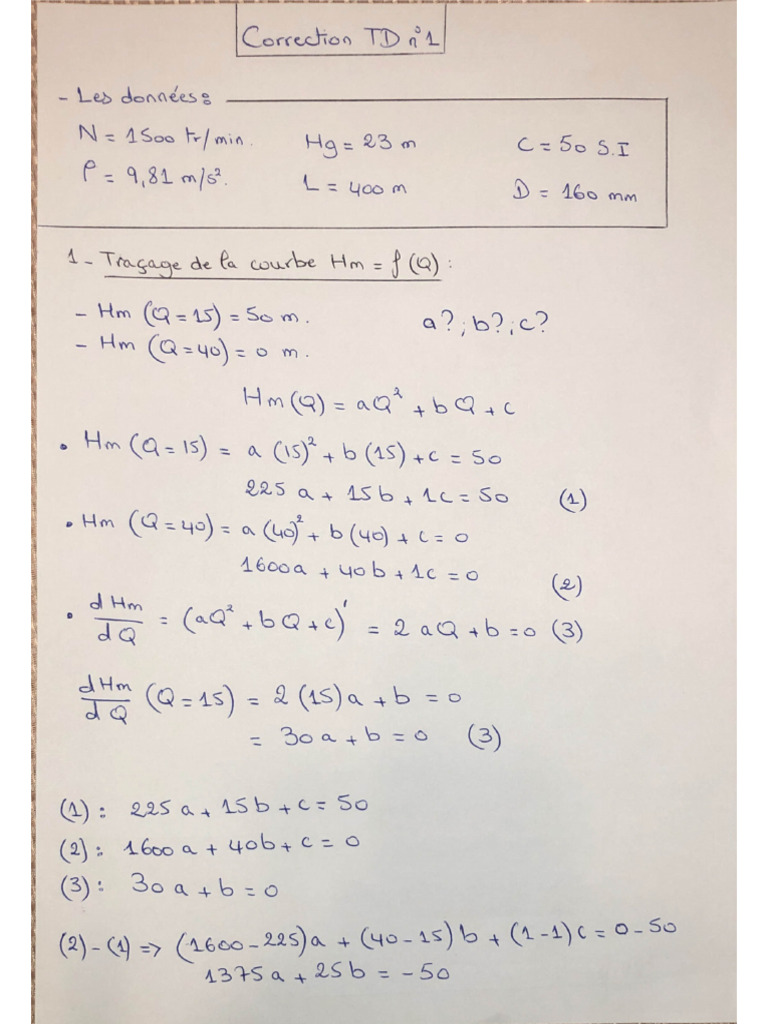 Correction TD n°1
- Les données:
N = 1500 tr/min. Hg = 23 m C = 50 S.I
P = 9,81 m/s². L = 400 m D = 160 mm
1 - Traçage de la courbe Hm = f(Q):
- Hm (Q=15) = 50 m. a?; b?; c?
- Hm (Q=40) = 0 m.
Hm(Q) = aQ² + bQ + c
• Hm (Q=15) = a (15)² + b(15) + c = 50
225 a + 15b + 1c = 50 (1)
• Hm (Q=40) = a(40)² + b(40) + c = 0
1600a + 40b + 1c = 0 (2)
• dHm/dQ = (aQ² + bQ + c)' = 2aQ + b = 0 (3)
dHm/dQ (Q=15) = 2(15)a + b = 0
= 30a + b = 0 (3)
(1): 225a + 15b + c = 50
(2): 1600a + 40b + c = 0
(3): 30a + b = 0
(2)-(1) => (1600-225)a + (40-15)b + (1-1)c = 0-50
1375a + 25b = -50